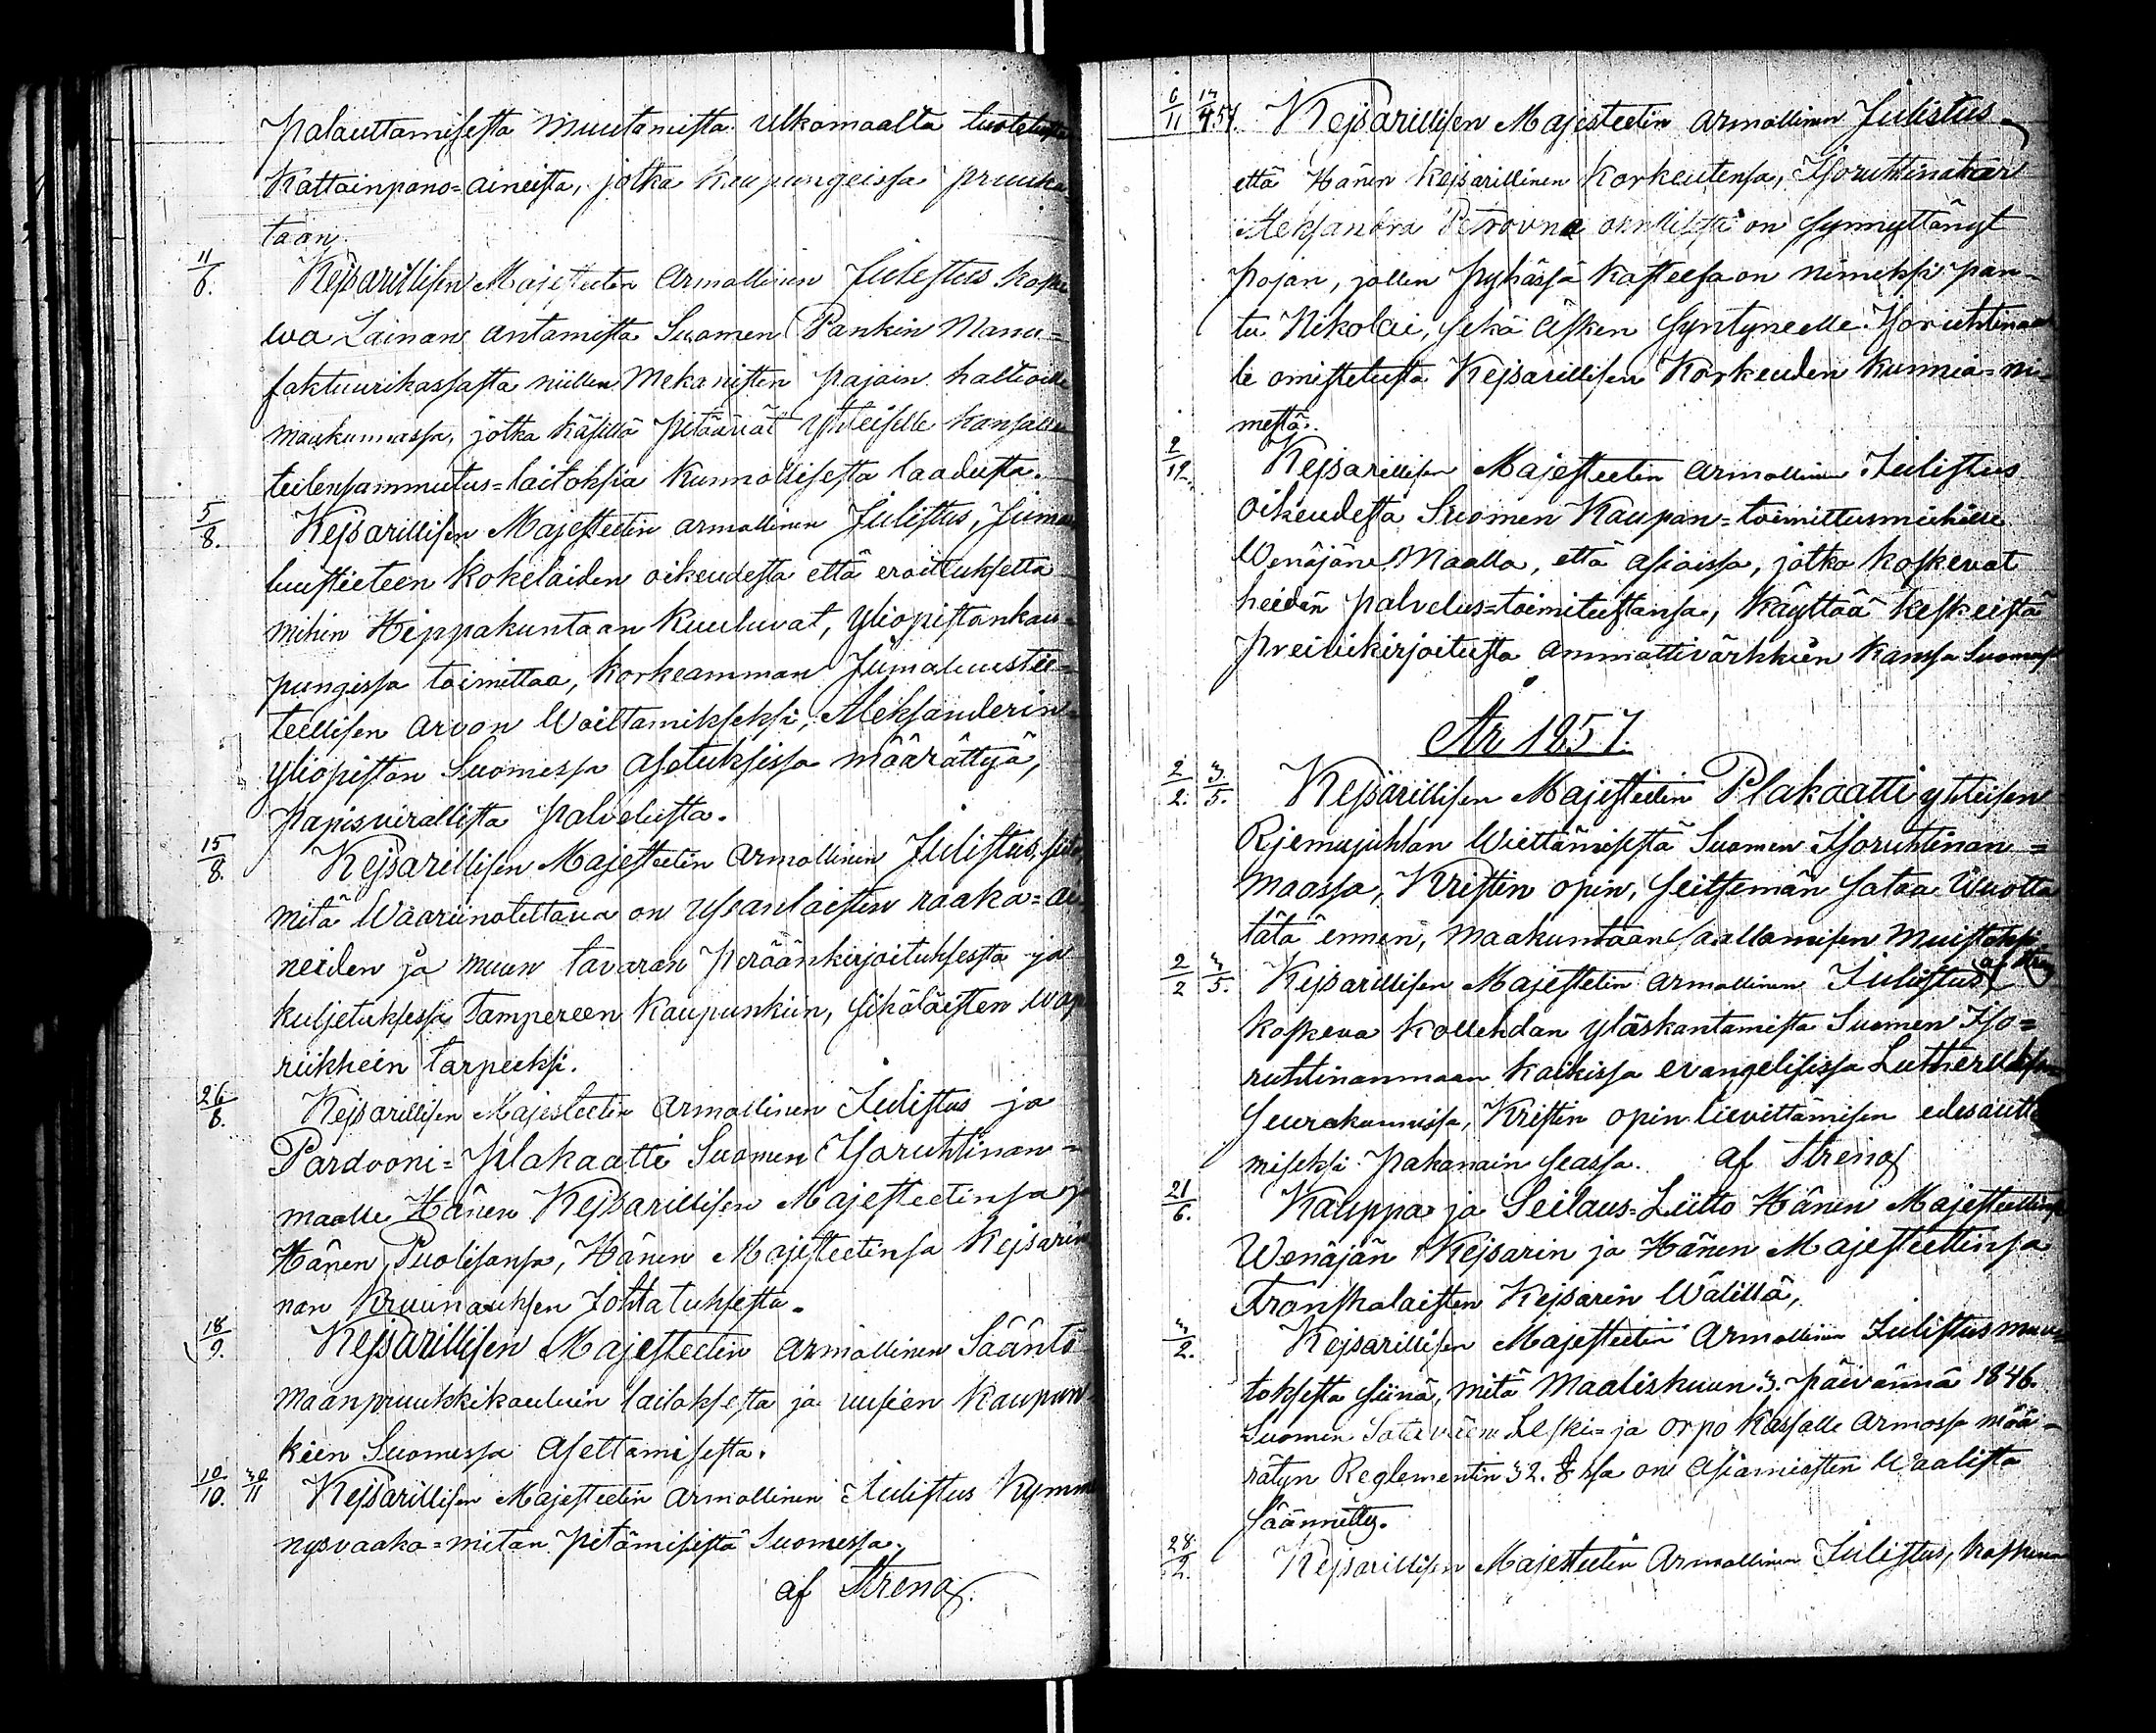 palauttamisesta muutamista ulkomaalta tuotetuista
Kattainpano=aineista, jotka kaupungeissa pruuka
taan.
11/6. Kejsarillisen Majesteetin Armollinen Julistus koske
wa Lainan antamista Suomen Pankin Manu=
faktuurikassasta niillen Mekanisten pajain haltioille
maakunnassa, jotka käsillä pitäävät Yhteiselle kansalle
tulensammutus=laitoksia kunnollisesta laadusta.
5/8. Kejsarillisen Majesteetin armollinen Julistus, Juma
luustieteen kokelaiden oikeudesta että eroituksetta
mihin Hippakuntaan kuuluvat, yliopistonkau=
pungissa toimittaa, korkeamman Jumaluustie=
teellisen arvon Woittamiseksi, Aleksanderin
yliopiston Suomessa asetuksissa määrättyä,
papisvirallista palvelusta.
15/8. Kejsarillisen Majesteetin Armollinen Julistus, siitä
mitä Waariinotettava on ussanlaisten raaka=ai
neiden ja muun tavaran peräänkirjoituksesta ja
kuljetuksessa Tampereen kaupunkiin, sikäläisten wap
riikkein tarpeeksi.
26/8. Kejsarillisen Majesteetin Armollinen Julistus ja
Pardooni=Plakaatti Suomen Isoruhtinan=
maalle Hänen Kejsarillisen Majesteetinsa ja
Hänen Puolisansa, Hänen Majesteetinsa Kejsarin
nan kruunauksen Johtatuksesta.
18/9. Kejsarillisen Majesteetin Armollinen Sääntö
Maanpruukkikouluin laitoksesta ja uusien kaupun
kien Suomessa Asettamisesta.
10/10. 30/11 Kejsarillisen Majesteetin Armollinen Julistus Kymme
nysvaaka=mitan pitämisestä Suomessa.
af Streng.
6/11 Kejsarillisen Majesteetin Armollinen Julistus
että Hänen Kejsarillinen Korkeutensa, Isoruhtinatar
Aleksandra Petrovna onnellisesti on synnyttänyt
pojan, jollen pyhässä kasteessa on nimeksi pan=
tu Nikolai, sekä äsken syntyneelle Isoruhtinaal
le omistetusta Kejsarillisen Korkeuden kunnia=ni=
mestä.
2/12. Kejsarillisen Majesteetin Armollinen Julistus
Oikeudesta Suomen Kaupan=toimittusmiehille
Wenäjän Maalla, että asioissa, jotka koskevat
heidän palvelus=toimitustansa, käyttää keskeistä
preivikirjoitusta ammattivärkkien kanssa Suomessa
År 1857.
2/2. 3/5. Kejsarillisen Majesteetin Plakaatti yhteisen
Riemujuhlan Wiettämisestä Suomen Isoruhtinan=
maassa, Kristin opin, seitsemän sataa Wuotta
tätä ennen, maakuntaan saattamisen Muistoksi
af Streng
2/2 3/5. Kejsarillisen Majesteetin Armollinen Julistus
koskeva kollehdan ylöskantamista Suomen Iso=
ruhtinanmaan kaikissa evangelisissa Lutherilaisen
seurakunnissa, Kristin opin levittämisen edesautta
miseksi Pakanain seassa. af Streng
21/6. Kauppa ja Seilaus=Liitto Hänen Majesteetinsa
Wenäjän Kejsarin ja Hänen Majesteettinsa
Franskalaisten Kejsarin Wälillä,
3/2. Kejsarillisen Majesteetin Armollinen Julistus muu
toksesta siinä, mitä Maaliskuun 3. päivännä 1846.
Suomen Leski= ja orpo kassalle Armossa mää=
rätyn Reglementin 32. § ssa on Asiamiesten Waalista
säännetty.
28/2. Kejsarillisen Majesteetin Armollinen Julistus, koskeva